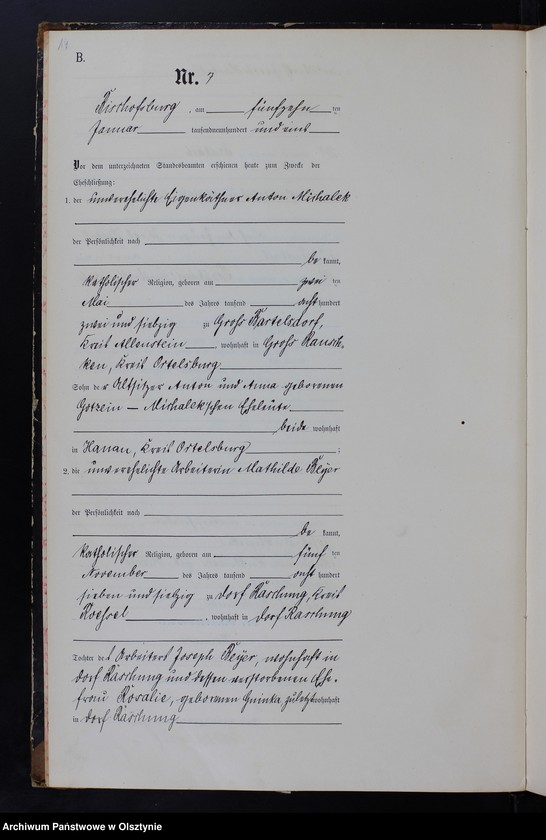 B.
Nr. 7
Bischofsburg, am fünfzehn ten
Januar tausendneunhundert und eins
Vor dem unterzeichneten Standesbeamten erschienen heute zum Zwecke der
Eheschließung:
1. der unverehelichte Eigenkäthner Anton Michalek
der Persönlichkeit nach
be kannt,
katholischer Religion, geboren am zwei ten
Mai des Jahres tausend acht hundert
zwei und siebzig zu Groß Bartelsdorf,
Kreis Allenstein wohnhaft in Groß Rausch-
ken, Kreis Ortelsburg
Sohn der Altsitzer Anton und Anna geborenen
— Michalek'schen Eheleute
beide wohnhaft
in Hanau, Kreis Ortelsburg ;
2. die unverehelichte Arbeiterin Mathilde Beyer
der Persönlichkeit nach
be kannt,
katholischer Religion, geboren am fünf ten
November des Jahres tausend acht hundert
sieben und siebzig zu Dorf Raschung, Kreis
Roessel, wohnhaft in Dorf Raschung
Tochter des Arbeiters Joseph Beyer, wohnhaft in
Dorf Raschung und dessen verstorbenen Ehe-
frau Rosalie, geborenen zuletzt wohnhaft
in Dorf Raschung
Archiwum Państwowe w Olsztynie